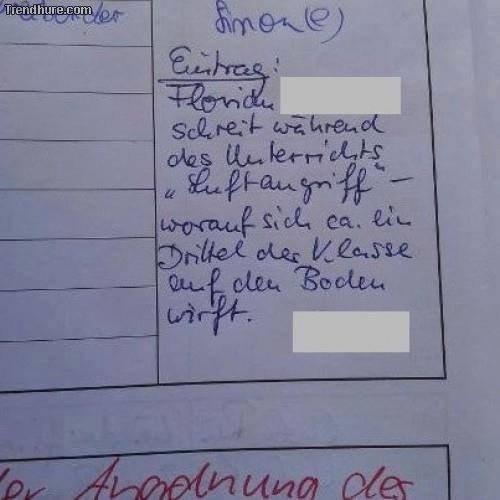 Trendhure.com
Simon(e)
Eintrag:
Florian
schreit während
des Unterrichts
„Luftangriff" –
worauf sich ca. ein
Drittel der Klasse
auf den Boden
wirft.
der Anordnung der